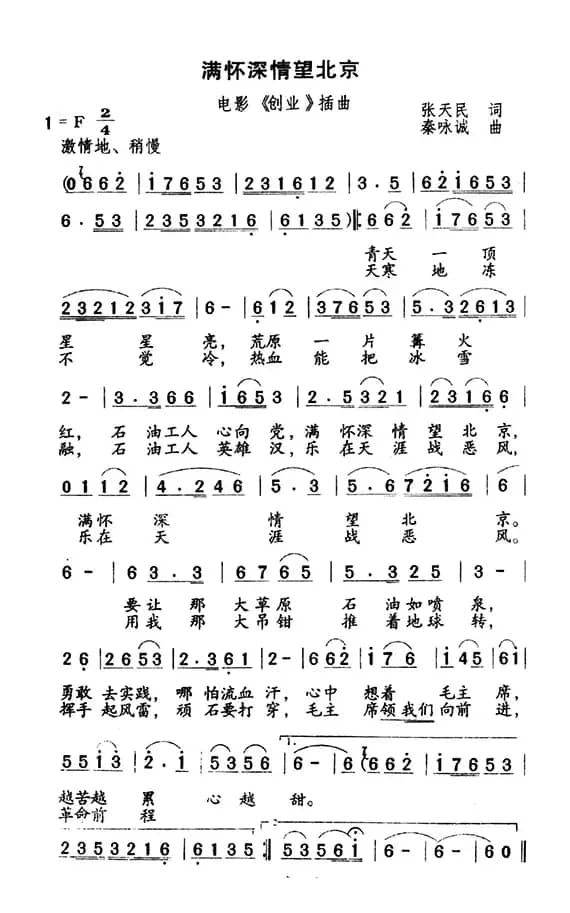 满怀深情望北京
电影《创业》插曲
张天民 词
1=F 2/4
秦咏诚 曲
激情地、稍慢
(0662̇|1̇7653|231612|3·5|621̇653|
6·53|2353216|6135)‖:662̇|1̇7653|
青天一顶
天寒地冻
2321231̇7|6-|612|37653|5.32613|
星星亮,荒原一片篝火
不觉冷,热血能把冰雪
2-|3.366|1̇653|2.5321|23166|
红,石油工人心向党,满怀深情望北京,
融,石油工人英雄汉,乐在天涯战恶风,
0112|4.246|5.35|5.672̇1̇6|6|
满怀深情望北京。
乐在天涯战恶风。
6-|63.3|6765|5.325|3-|
要让那大草原石油如喷泉,
用我那大吊钳推着地球转,
26|2653|2.361|2-|662̇|1̇76|45|61̇|
勇敢去实践,哪怕流血汗,心中想着毛主席,
挥手起风雷,顽石要打穿,毛主席领我们向前进,
551̇3̇|2̇.1̇|535|1.6-|6-(662̇|1̇7653|
越苦越累心越甜。
革命前程
2353216|6135:‖53561̇|6-|6-|60‖